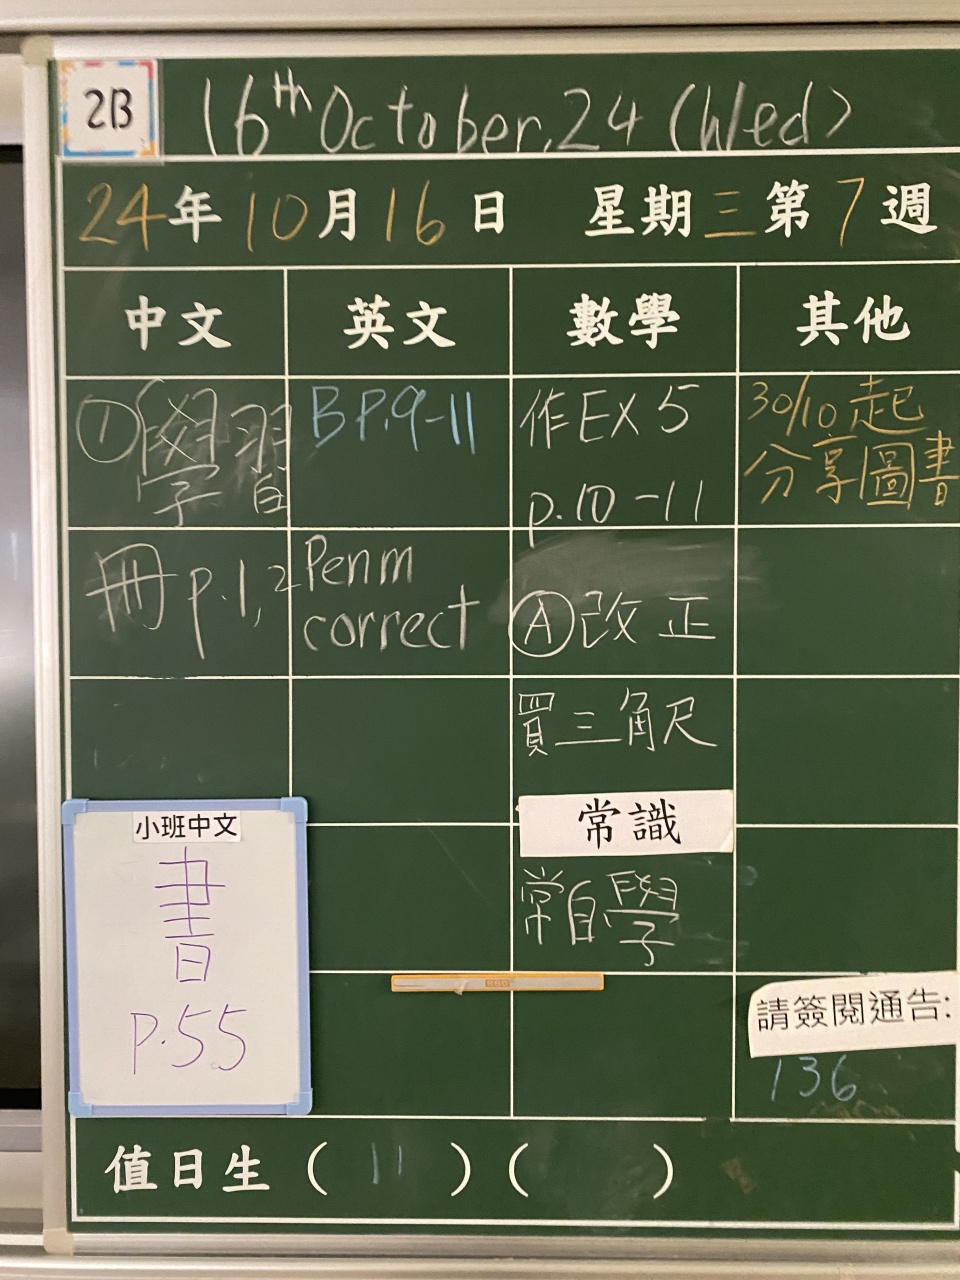 2B
16th October,24 (Wed)
24年10月16日 星期三第7週
中文 英文 數學 其他
①學習
冊 p.1,2
BP.9-11
Penm
correct
作EX 5
p.10-11
Ⓐ改正
買三角尺
常識
常自學
30/10起
分享圖書
小班中文
書
P.55
請簽閱通告:
136
值日生 ( 11 ) ( )